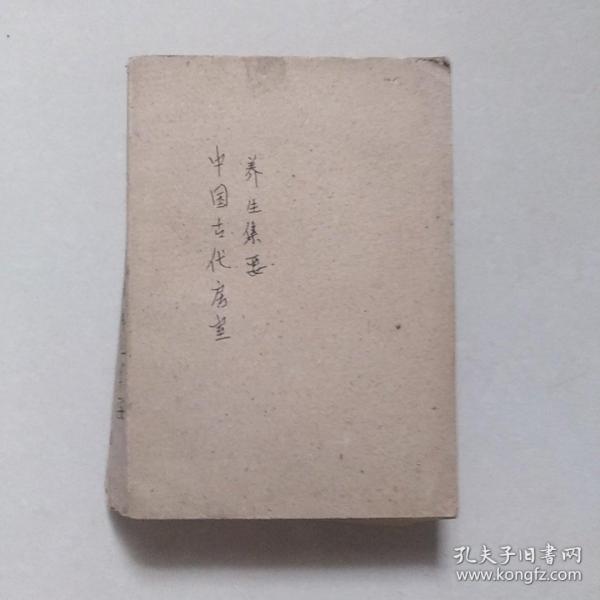 中国古代房室
养生集要
孔夫子旧书网
www.kongfz.com